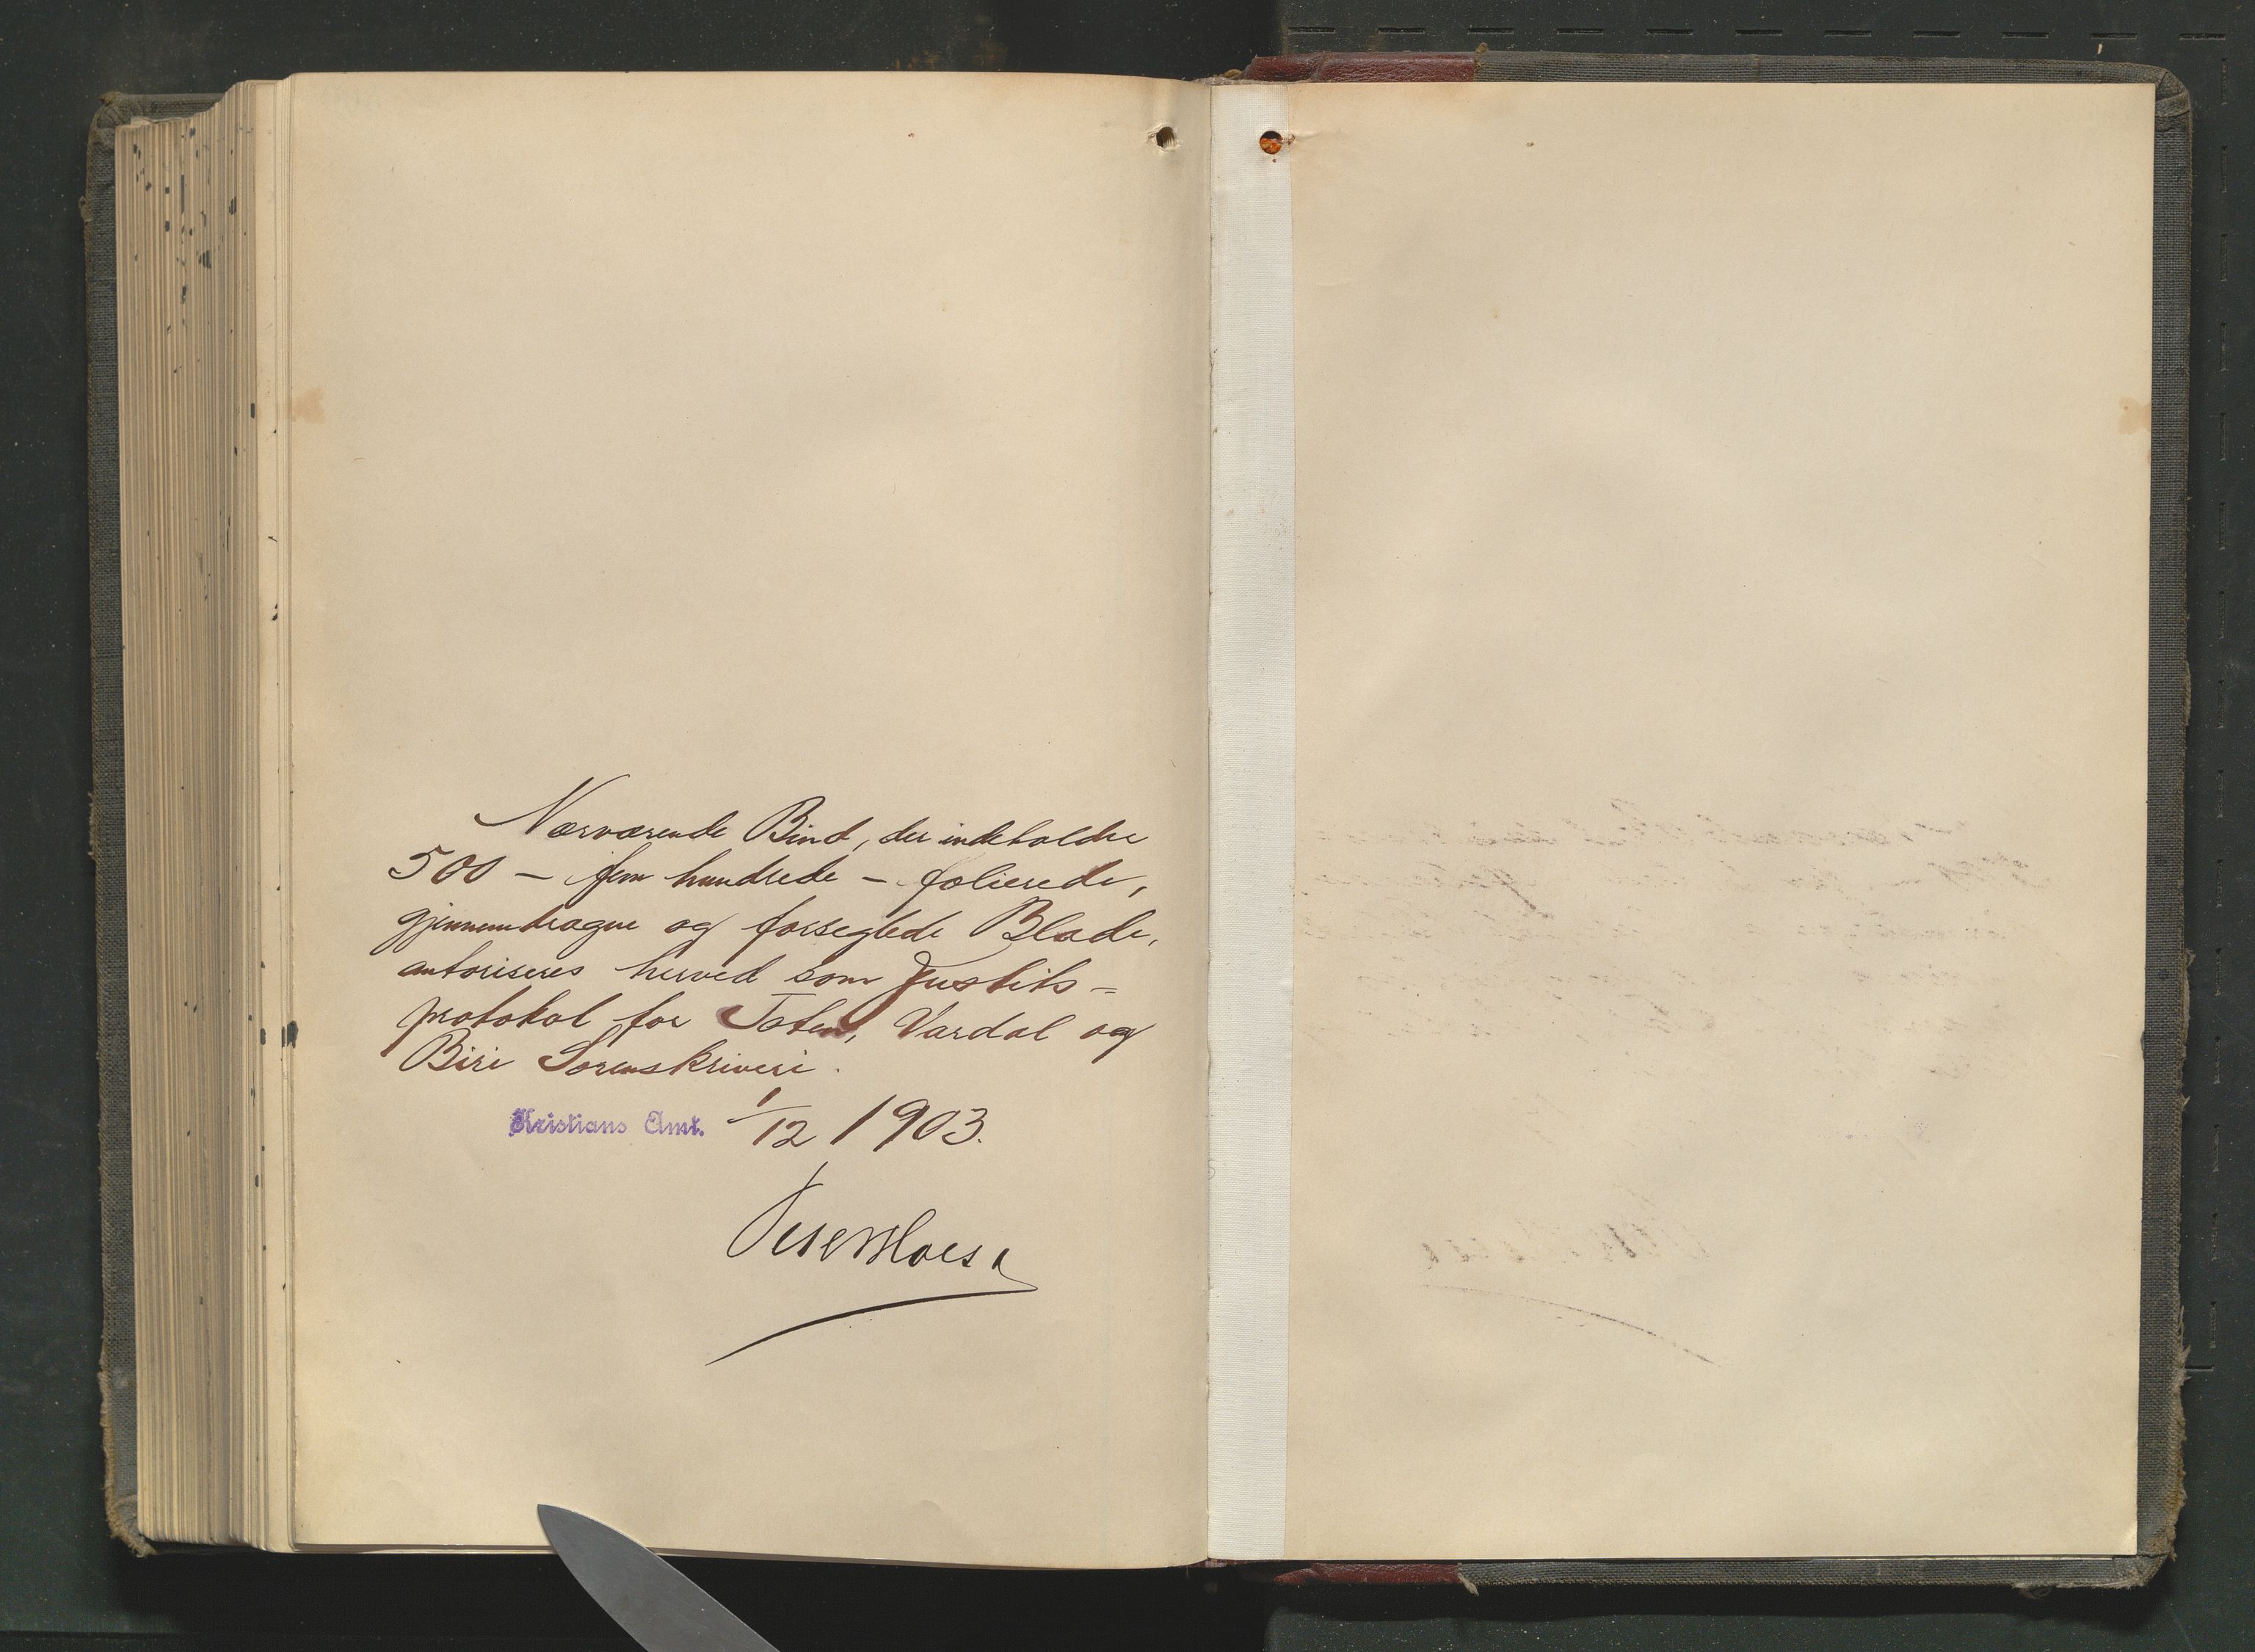 Nærværende Bind, der indeholder
500 – fem hundrede – folierede,
gjennemdragne og forseglede Blade,
autoriseres herved som Justits=
protokol for Toten, Vardal og
Biri Sorenskriveri.
Kristians Amt. 1/12 1903.